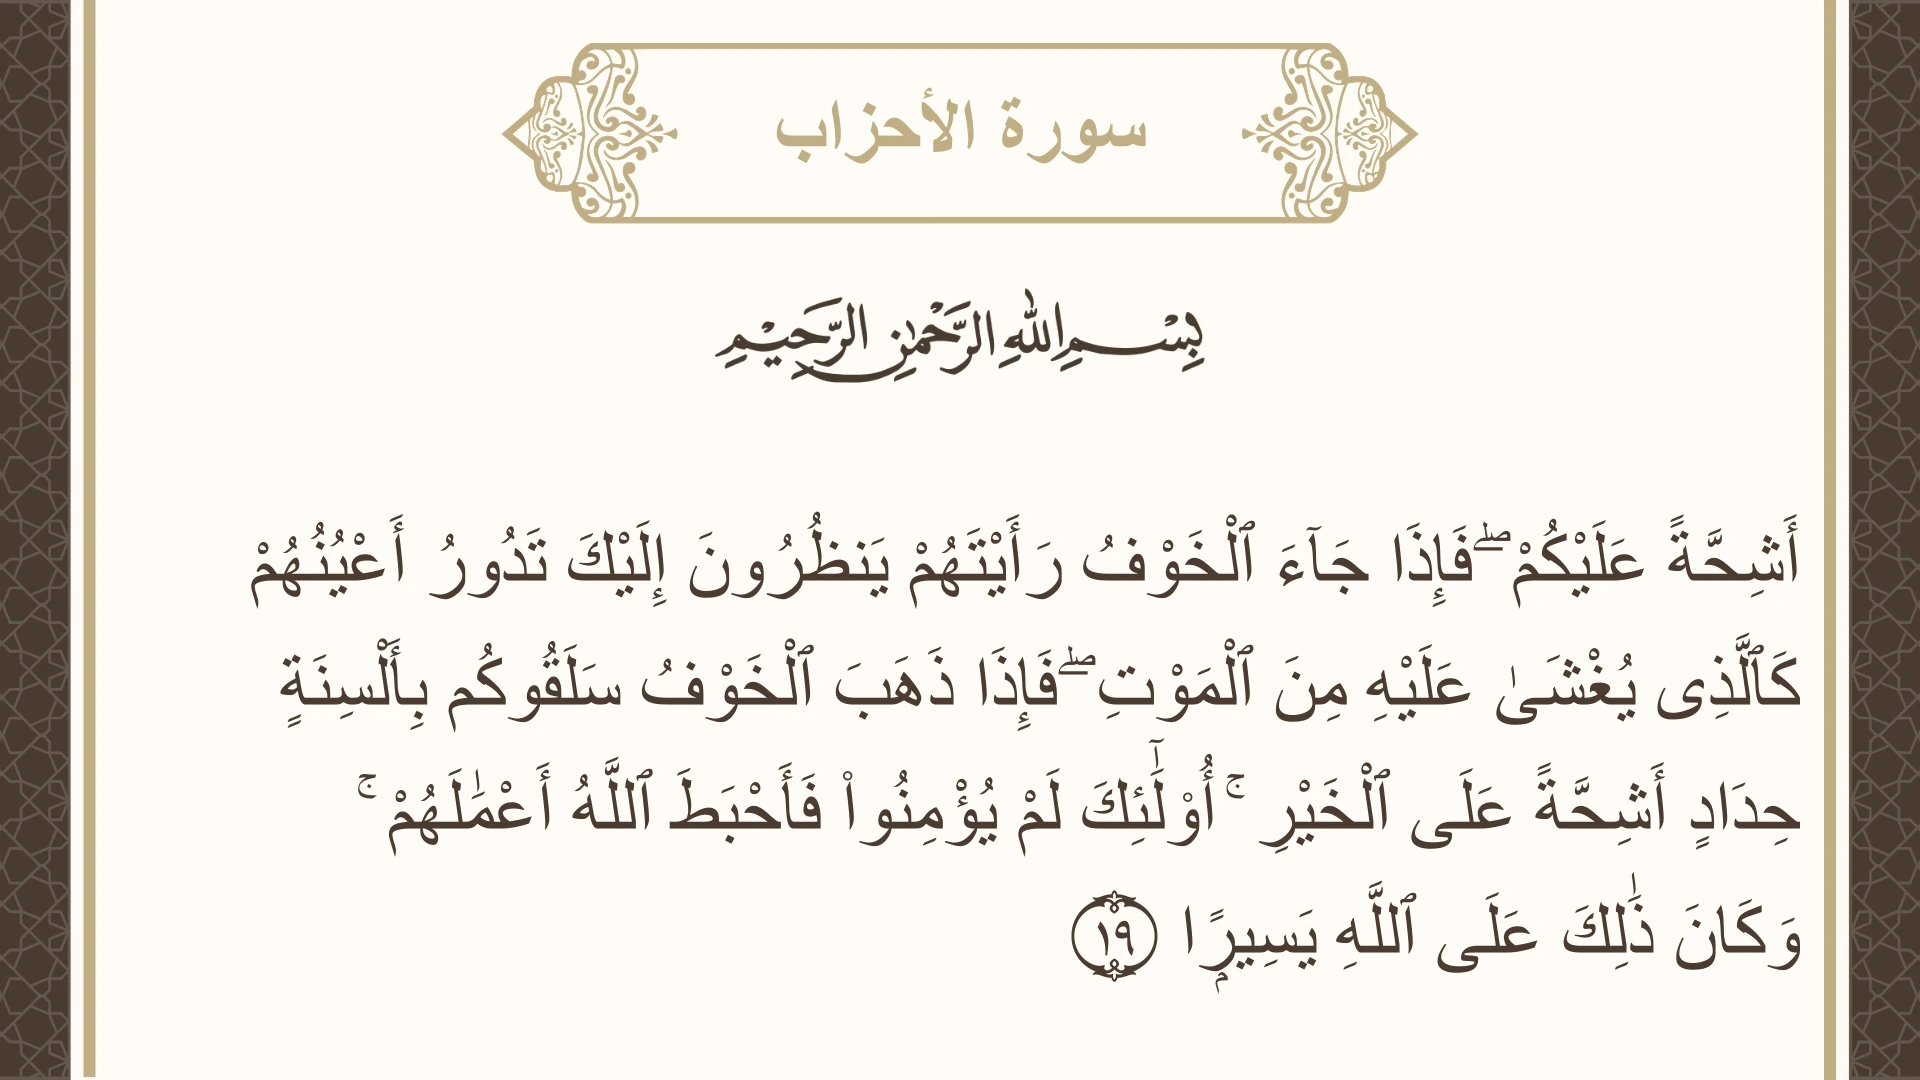 سورة الأحزاب
بِسْمِ اللهِ الرَّحْمٰنِ الرَّحِيْمِ
أَشِحَّةً عَلَيْكُمْ ۖ فَإِذَا جَآءَ ٱلْخَوْفُ رَأَيْتَهُمْ يَنظُرُونَ إِلَيْكَ تَدُورُ أَعْيُنُهُمْ
كَٱلَّذِى يُغْشَىٰ عَلَيْهِ مِنَ ٱلْمَوْتِ ۖ فَإِذَا ذَهَبَ ٱلْخَوْفُ سَلَقُوكُم بِأَلْسِنَةٍ
حِدَادٍ أَشِحَّةً عَلَى ٱلْخَيْرِ ۚ أُو۟لَـٰٓئِكَ لَمْ يُؤْمِنُوا۟ فَأَحْبَطَ ٱللَّهُ أَعْمَـٰلَهُمْ ۚ
وَكَانَ ذَٰلِكَ عَلَى ٱللَّهِ يَسِيرًۭا ١٩